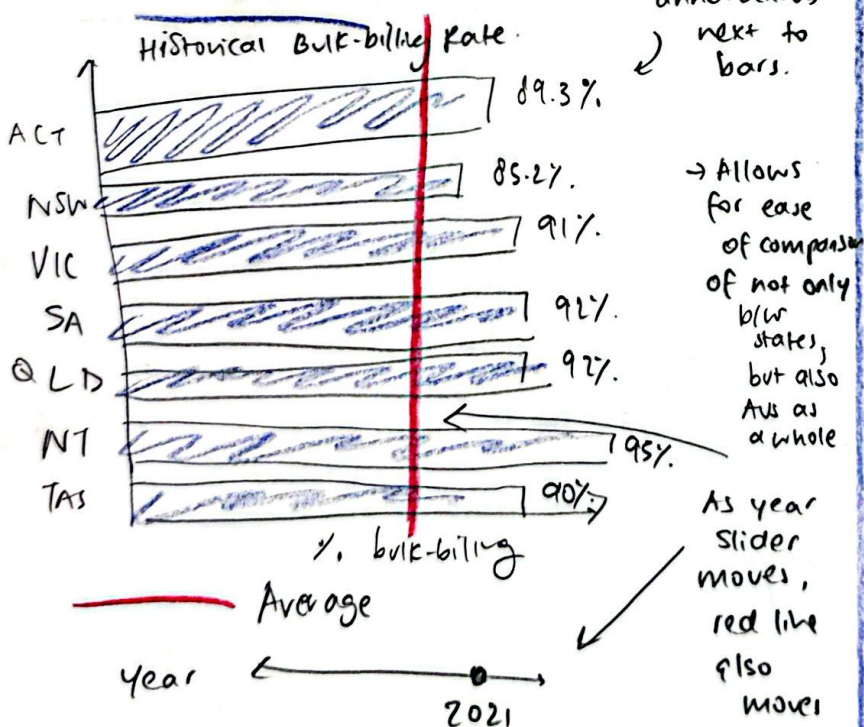 Historical Bulk-billing Rate.
next to
bars.
ACT 89.3%.
NSW 85.2%.
VIC 91%.
SA 92%.
QLD 92%.
NT 95%.
TAS 90%.
% bulk-biling
Average
year
2021
→ Allows
for ease
of comparison
of not only
b/w
states,
but also
Aus as
a whole
As year
slider
moves,
red line
also
moves